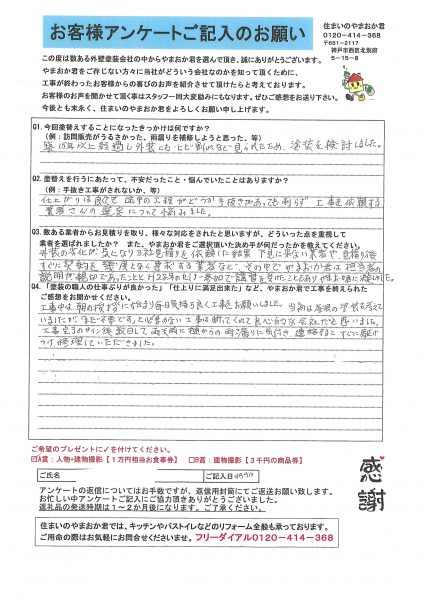 お客様アンケートご記入のお願い
住まいのやまおか君
0120-414-368
〒651-2117
神戸市西区北別府
5-15-8
この度は数ある外壁塗装会社の中からやまおか君を選んで頂き、誠にありがとうございます。
やまおか君をご存じない方々に当社がどういう会社なのかを知って頂くために、
工事が終わったお客様からの喜びのお声を紹介させて頂けたらと考えております。
お客様のお声を聞かせて頂く事はスタッフ一同大変励みになります。ぜひご感想をお送り下さい。
今後とも末永く、住まいのやまおか君をよろしくお願い申し上げます。
Q1. 今回塗替えすることになったきっかけは何ですか？
（例：訪問販売がうるさかった、雨漏りを補修しようと思った、等）
築15年以上経過し外装にもヒビ割れなど見られたため、塗装を検討しました。
Q2. 塗替えを行うにあたって、不安だったこと・悩んでいたことはありますか？
（例：手抜き工事がされないか、等）
仕上がりは良くても途中の工程がどうか手抜きがあっても判らず 工事を依頼する
業者さんの選定について悩みました。
Q3. 数ある業者からお見積りを取り、様々な対応をされたと思いますが、どういった点を重視して
業者を選ばれましたか？ また、やまおか君をご選択頂いた決め手が何だったかを教えてください。
外装の劣化が気になり3社見積りを依頼した結果 下見に来ない業者や、見積り後
すぐに契約を強度となく要求する業者など、その中でやまおか君は担当者の
説明が親切であったことと
Q4. 「塗装の職人の仕事ぶりが良かった」「仕上りに満足出来た」など、やまおか君で工事を終えられた
ご感想をお聞かせください。
工事中は、朝の挨拶に始まり毎日気持ち良く工事をお願いしました。当初は屋根の塗装も考えて
いましたがまだ不要です、と必要のない工事は断ってくれて良心的な会社だと思いました。
工事完了のサイン後 数日して雨天時に樋からの雨漏りに気付き、連絡するとすぐに駆け
つけ修理していただきました。
ご希望のプレゼントに✓を付けてください。
☑A賞：人物+建物撮影【1万円相当お食事券】 □B賞：建物撮影【3千円の商品券】
ご氏名
ご記入日
感謝
アンケートの返信についてはお手数ですが、返信用封筒にてご返送お願い致します。
お忙しい中アンケートご記入にご協力頂きありがとうございました。
返礼品の発送時期は1～2か月後になります。ご了承ください。
住まいのやまおか君では、キッチンやバストイレなどのリフォーム全般も承っております。
ご用命の際はお気軽にお問合せくださいませ。フリーダイアル0120-414-368